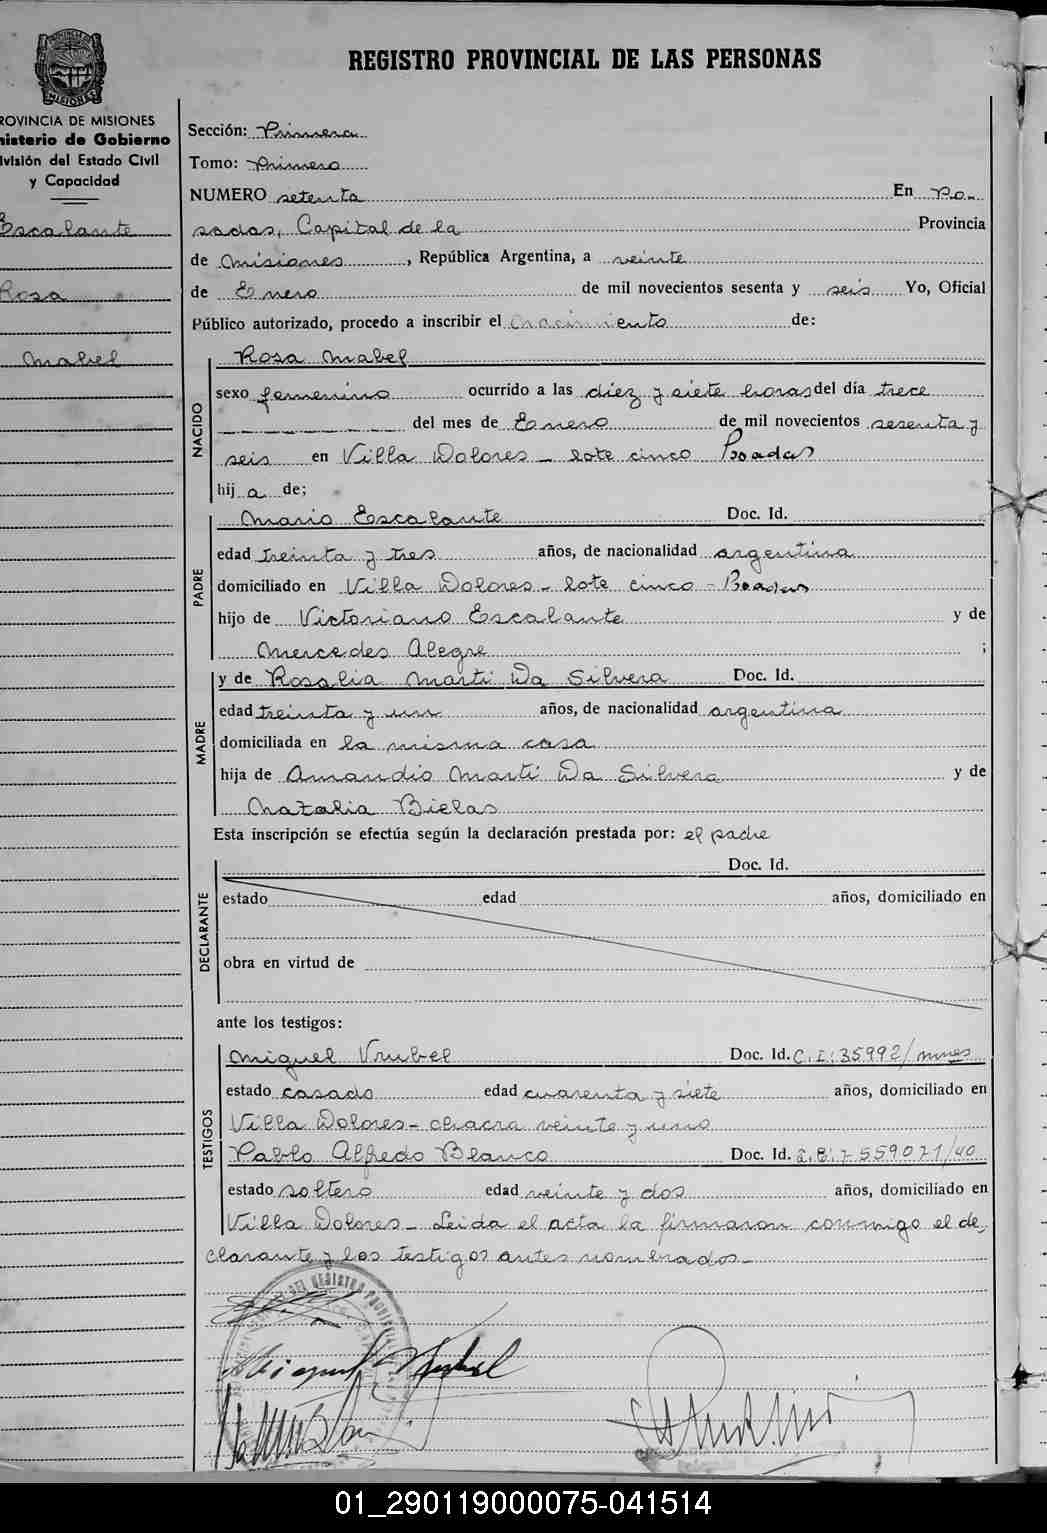 PROVINCIA DE
MISIONES
REGISTRO PROVINCIAL DE LAS PERSONAS
ROVINCIA DE MISIONES
nisterio de Gobierno
ivisión del Estado Civil
y Capacidad
Escalante
Rosa
Mabel
Sección: Primera
Tomo: Primero
NUMERO setenta En Po-
sadas, Capital de la Provincia
de Misiones, República Argentina, a veinte
de Enero de mil novecientos sesenta y seis Yo, Oficial
Público autorizado, procedo a inscribir el nacimiento de:
NACIDO
Rosa Mabel
sexo femenino ocurrido a las diez y siete horas del día trece
del mes de Enero de mil novecientos sesenta y
seis en Villa Dolores - lote cinco Posadas
hij a de;
PADRE
Mario Escalante Doc. Id.
edad treinta y tres años, de nacionalidad argentina
domiciliado en Villa Dolores - lote cinco - Posadas
hijo de Victoriano Escalante y de
Mercedes Alegre ;
MADRE
y de Rosalia Marti Da Silvera Doc. Id.
edad treinta y un años, de nacionalidad argentina
domiciliada en la misma casa
hija de Amandio Marti Da Silvera y de
Natalia Bielas
Esta inscripción se efectúa según la declaración prestada por: el padre
Doc. Id.
DECLARANTE
estado edad años, domiciliado en
obra en virtud de
ante los testigos:
TESTIGOS
Miguel Vrubel Doc. Id. C.I: 35992/mnes
estado casado edad cuarenta y siete años, domiciliado en
Villa Dolores - chacra veinte y uno
Pablo Alfredo Blanco Doc. Id. 7.559.071/40
estado soltero edad veinte y dos años, domiciliado en
Villa Dolores - Leida el acta la firmaron conmigo el de-
clarante y los testigos antes nombrados -
Miguel Vrubel
01_290119000075-041514